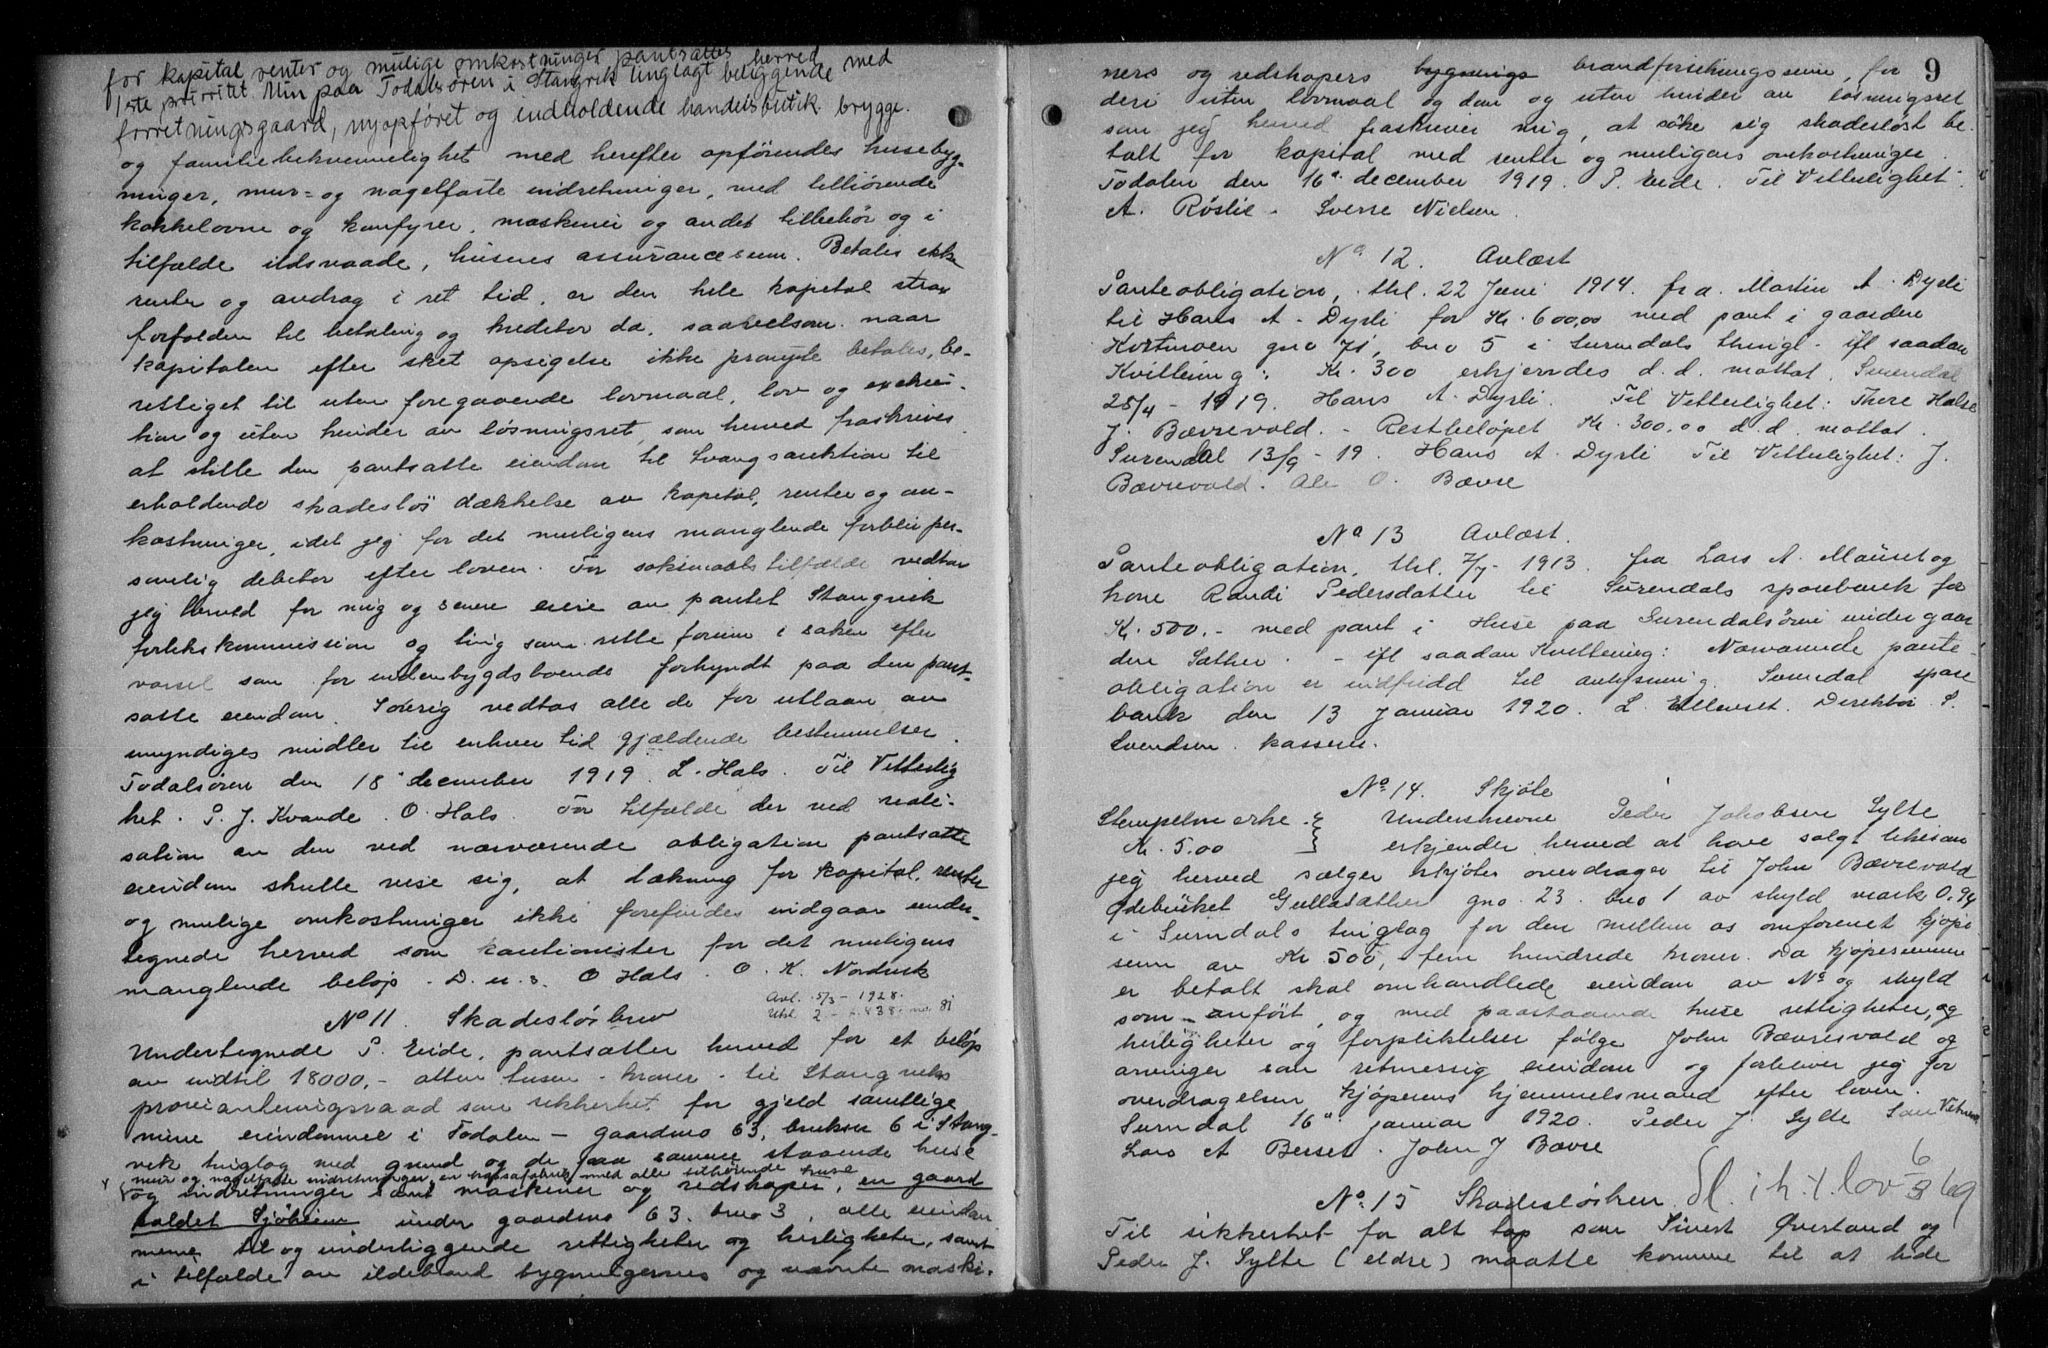 for kapital renter og mulige omkostninger pantsættes herved med
1ste prioritet. Min paa Todalsøren i Stangvik tinglagt beliggende
forretningsgaard, nyopføret og indholdende handelsbutik, brygge
og familiebekvemmelighet med herefter opførendes husebyg-
ninger, mur- og nagelfaste indretninger, med tilhørende
kakkelovne og komfyrer, maskineri og andet tilbehör og i
tilfælde ildsvaade, husenes assurancesum. Betales ikke
renter og avdrag i ret tid, er den hele kapital strax
forfalden til betaling og kreditor da, saavelsom naar
kapitalen efter sket opsigelse ikke prompte betales, be-
rettiget til uten foregaaende lovmaal, lov og exekui-
tion og uten hinder av løsningsret, som herved fraskrives
at stille den pantsatte eiendom til tvangsauktion til
erholdende skadesløs dækkelse av kapital, renter og om-
kostninger, idet jeg for det muligens manglende forblir per-
sonlig debitor efter loven. For søksmaals tilfælde vedtar
jeg herved for mig og senere eiere av pantet Stangvik
forlikskommission og ting som rette forum i saken efter
varsel som for indenbygdsboende forkyndt paa den pant-
satte eiendom. Forøvrig vedtas alle de for utlaan av
umyndiges midler til enhver tid gjældende bestemmelser.
Todalsøren den 18 december 1919. L. Hals. Til Vitterlig
het. P. J. Kvande. O. Hals. For tilfælde der ved reali-
sation av den ved nærværende obligation pantsatte
eiendom skulle vise sig, at dækning for kapital, renter
og mulige omkostninger ikke forefindes indgaar under-
tegnede herved som kautionister for det muligens
manglende beløp. D. u. s. O Hals. O. K. Nordvik
Avl. 5/3 - 1928.
No 11. Skadesløsbrev
Undertegnede P. Eide, pantsætter herved for et beløp
av indtil 18000,- atten tusen - kroner - til Stangviks
provianteringsraad som sikkerhet for gjeld samtlige
mine eiendomme i Todalen - gaardsno 63, bruksno 6 i Stang-
vik tinglag med grund og de paa samme staaende huse
mur og nagelfaste indretninger, en med alle tilhørende huse
og indretninger samt maskiner og redskaper, en gaard
kaldet Sjøheim under gaardsno 63. bno 3, alle eiendom
mene til og underliggende rettigheter og herligheter, samt
i tilfælde av ildebrand bygningernes og nævnte maski-
9
ners og redskapers bygnings brandforsikringssum, for
deri uten lovmaal og dom og uten hinder av løsningsret
som jeg herved fraskriver mig, at søke sig skadesløst be-
talt for kapital med renter og muligens omkostninger.
Todalen den 16de december 1919. P. Eide. Til Vitterlighet.
A. Røslie. Sverre Nielsen.
No 12. Avlæst
Panteobligation, thl. 22 Juni 1914. fra Martin A. Dyrli
til Hans A. Dyrli for Kr. 600,00 med pant i gaarden
Kvitmoen gno 71, bno 5 i Surendals thingl. ifl saadan
Kvittering: Kr. 300 erkjendes d.d. mottat. Surendal
25/4 - 1919. Hans A. Dyrli. Til Vitterlighet: Thore Halse
J. Bævrevold. - Restbeløpet Kr. 300,00 d.d. mottat.
Surendal 13/9 - 19. Hans A. Dyrli Til Vitterlighet: J.
Bævrevold. Ale O. Bævre
No 13 Avlæst.
Panteobligation, thl. 7/7 - 1913 fra Lars A. Mauset og
kone Randi Pedersdatter til Surendals sparebank for
Kr. 500.- med pant i Huse paa Surendalsören under gaar
den Sæther. - ifl saadan Kvittering: Nærværende pante-
obligation er indfridd til avlysning. Surendal spare
bank den 13 Januar 1920. L. Ellevset. Direktør. S.
Svendsen. kasserer.
No 14. Skjøte
Stempelmerke Underskrevne Peder Jakobsen Sylte
Kr. 5.00 erkjender herved at have solgt likesom
jeg herved sælger skjøter overdrager til John Bævrevold
ødebruket Gullasæther gno. 23 bno 1 av skyld mark 0.94
i Surndals tinglag for den mellem os omforenet kjøpe
sum av Kr 500, fem hundrede kroner. Da kjøpesummen
er betalt skal omhandlede eiendom av No og skyld
som anført, og med paastaaende huse rettigheter, og
herligheter og forpliktelser følge John Bævrevold og
arvinger som retmessig eiendom og forbliver jeg for
overdragelsen kjøperens hjemmelsmand efter loven.
Surndal 16de januar 1920. Peder J. Sylte Som Vitner
Lars A Berset. John J Bævre
No. 15 Skadesløsbrev Sl. i h. t. lov 6/
Til sikkerhet for alt tap som Sivert Øverland og
Peder J. Sylte (eldre) maatte komme til at lide